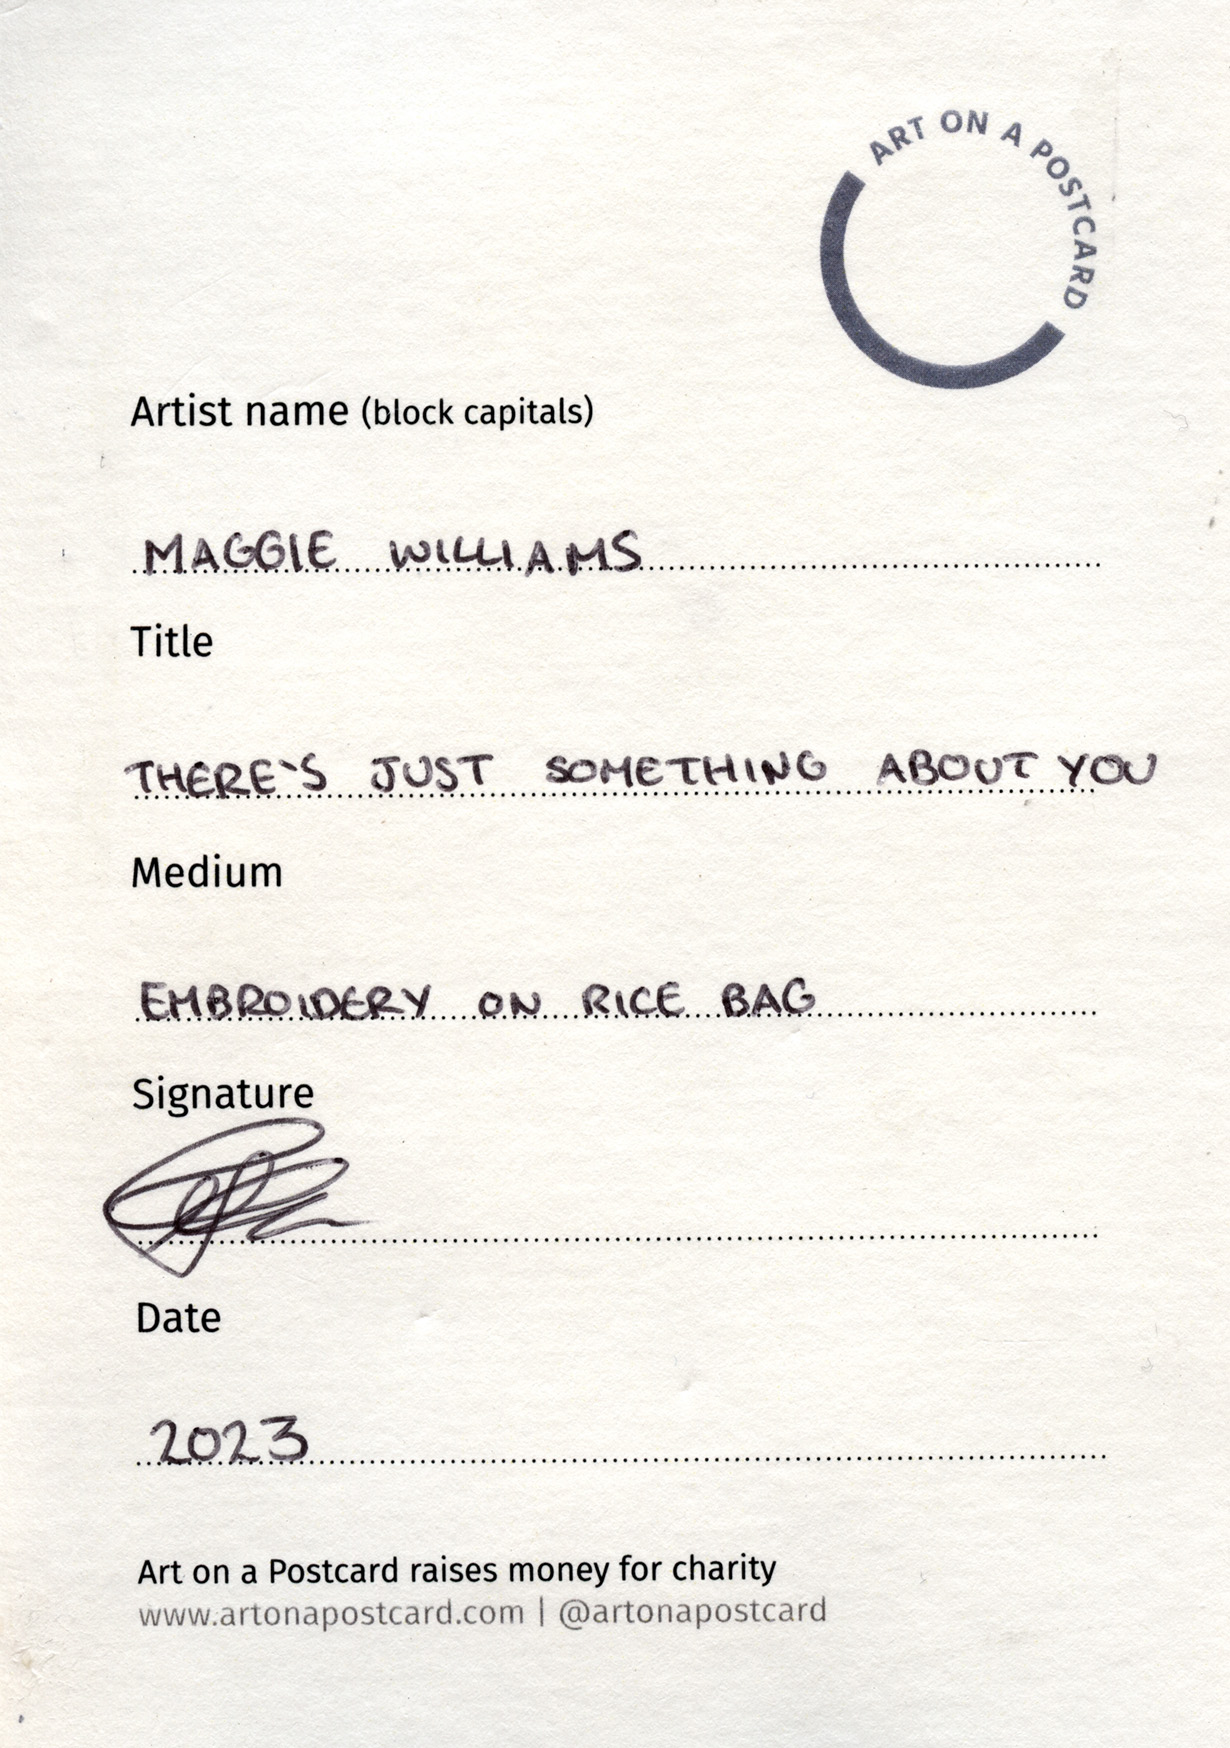 ART ON A POSTCARD
Artist name (block capitals)
MAGGIE WILLIAMS
Title
THERE`S JUST SOMETHING ABOUT YOU
Medium
EMBROIDERY ON RICE BAG
Signature
Date
2023
Art on a Postcard raises money for charity
www.artonapostcard.com | @artonapostcard